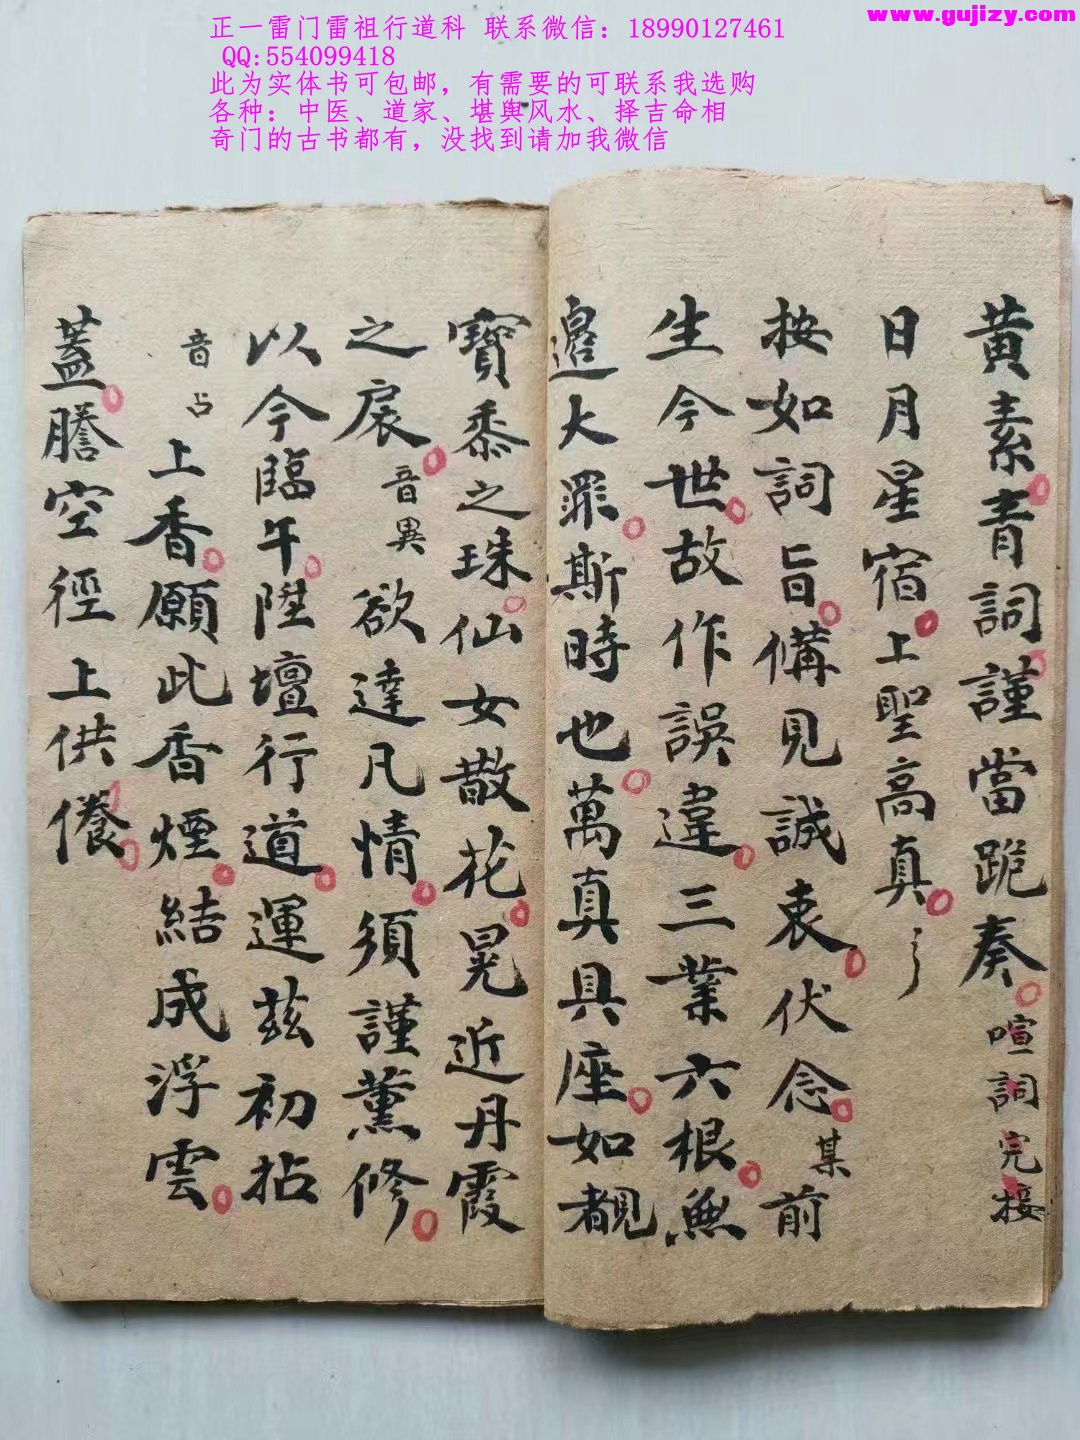 正一雷门雷祖行道科 联系微信：18990127461
QQ:554099418
此为实体书可包邮，有需要的可联系我选购
各种：中医、道家、堪舆风水、择吉命相
奇门的古书都有，没找到请加我微信
www.gujizy.com
黄素青詞謹當跪奏喧詞完接
日月星宿上聖高真
按如詞旨備見誠衷伏念某前
生今世故作誤違三業六根無
邉大罪斯時也萬真具座如覩
寶黍之珠仙女散花晃近丹霞
之扆音異欲達凡情須謹薰修
以今臨午陞壇行道運兹初拈
音占上香願此香煙結成浮雲
蓋騰空徑上供養